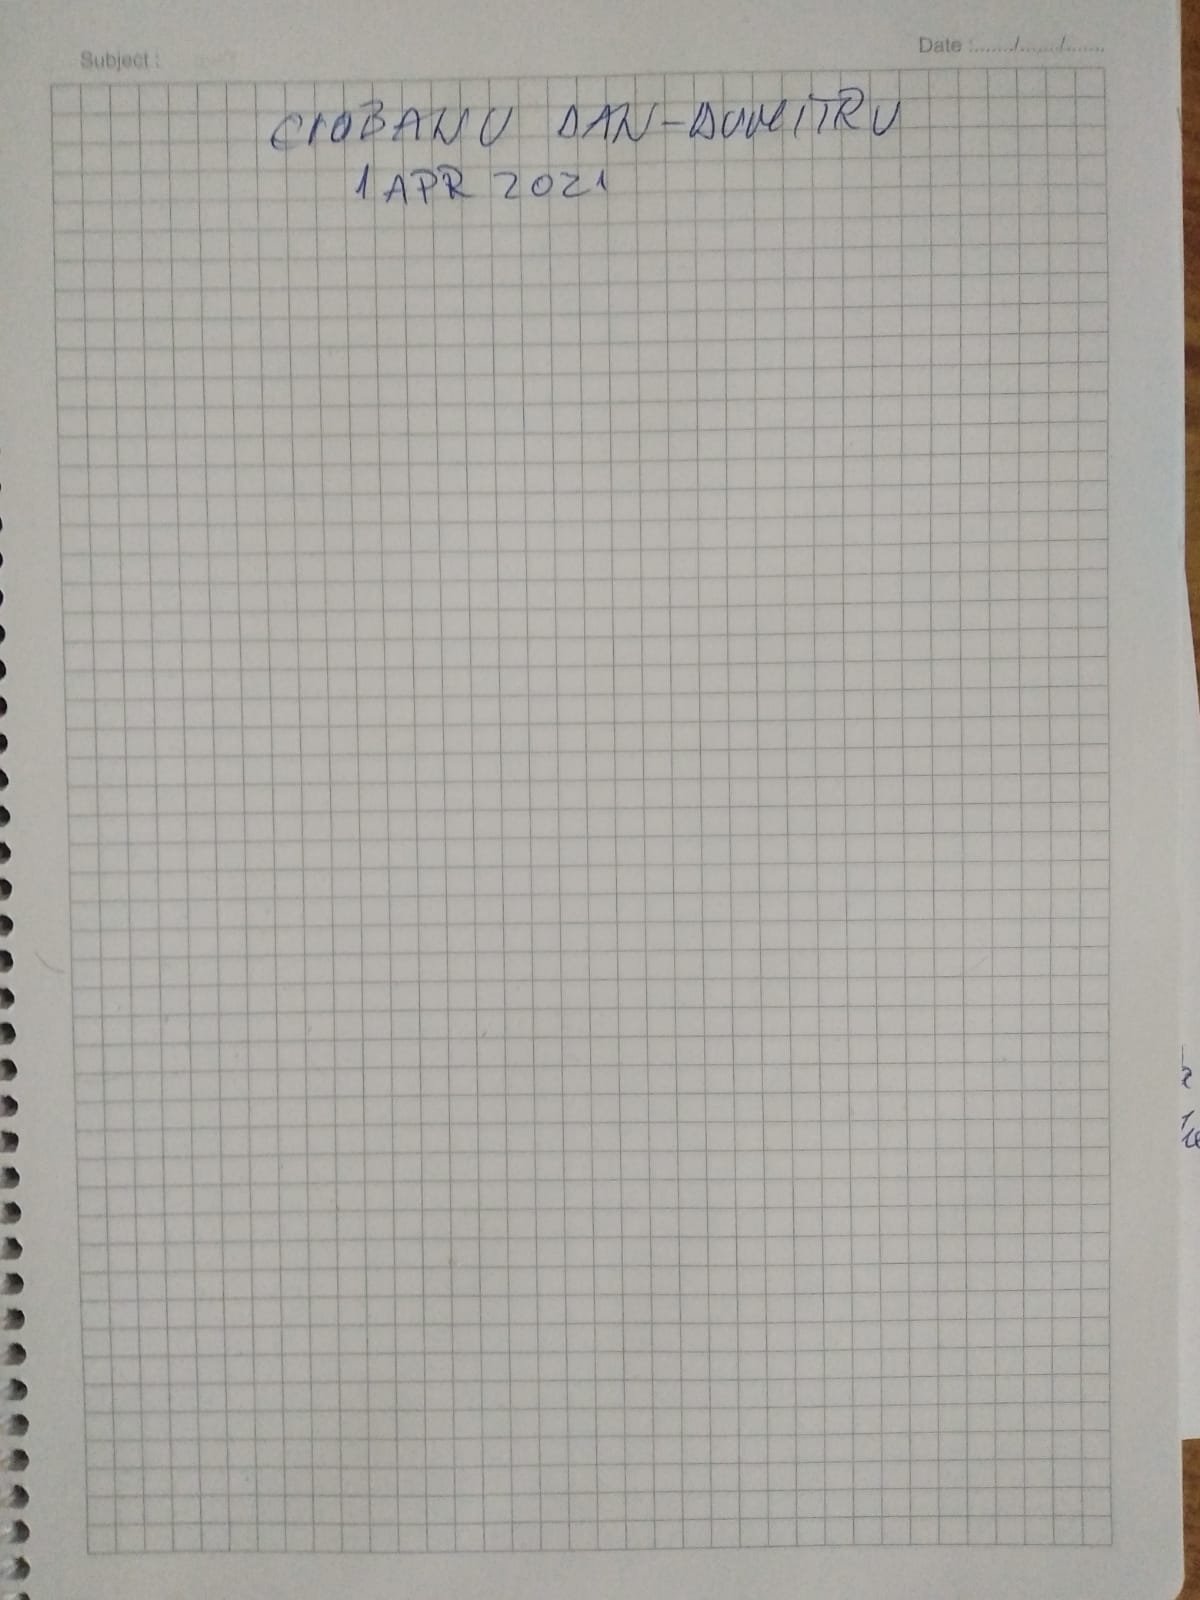 Subject :
Date :....../......./.......
CIOBANU DAN-DUMITRU
1 APR 2021